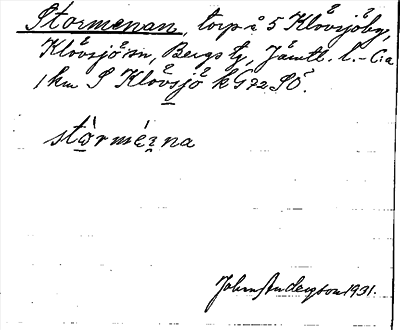 Stormenan, torp å 5 Klövsjöby,
Klövsjö sn, Bergs tg, Jämtl. l. – C:a
1 km S Klövsjö k G 72 SO.
stòrména
John Anderson 1931.